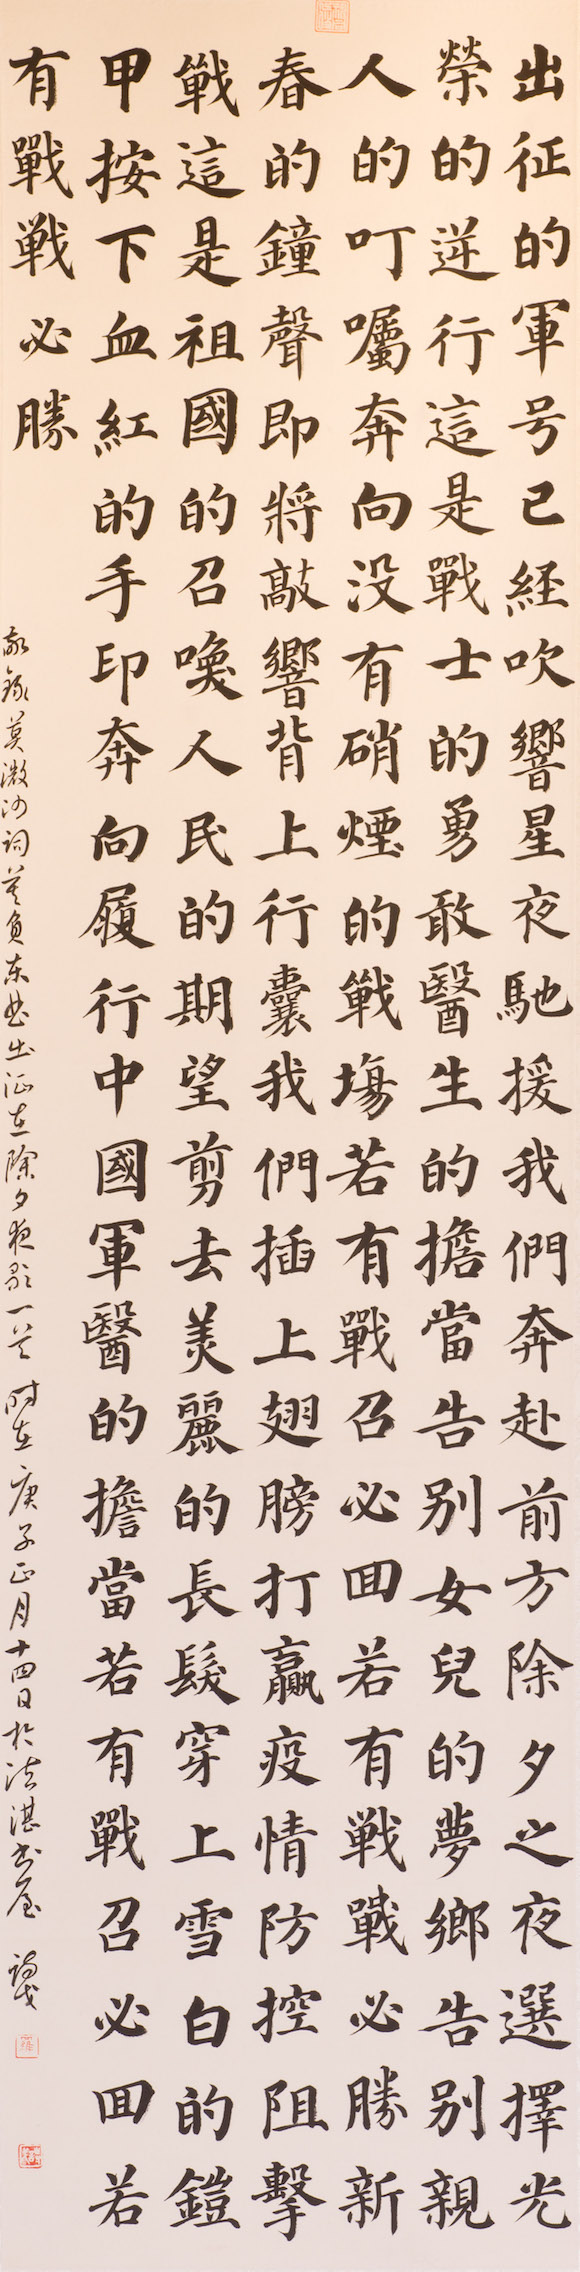 出征的軍号已經吹響星夜馳援我們奔赴前方除夕之夜選擇光
榮的逆行這是戰士的勇敢醫生的擔當告别女兒的夢鄉告别親
人的叮囑奔向没有硝煙的戰塲若有戰召必囬若有戰戰必勝新
春的鐘聲即將敲響背上行囊我們插上翅膀打贏疫情防控阻擊
戰這是祖國的召喚人民的期望剪去美麗的長髮穿上雪白的鎧
甲按下血紅的手印奔向履行中國軍醫的擔當若有戰召必囬若
有戰戰必勝
敬錄莫 词 东曲出征在除夕夜歌一首 时在庚子正月十四日於 湛书屋